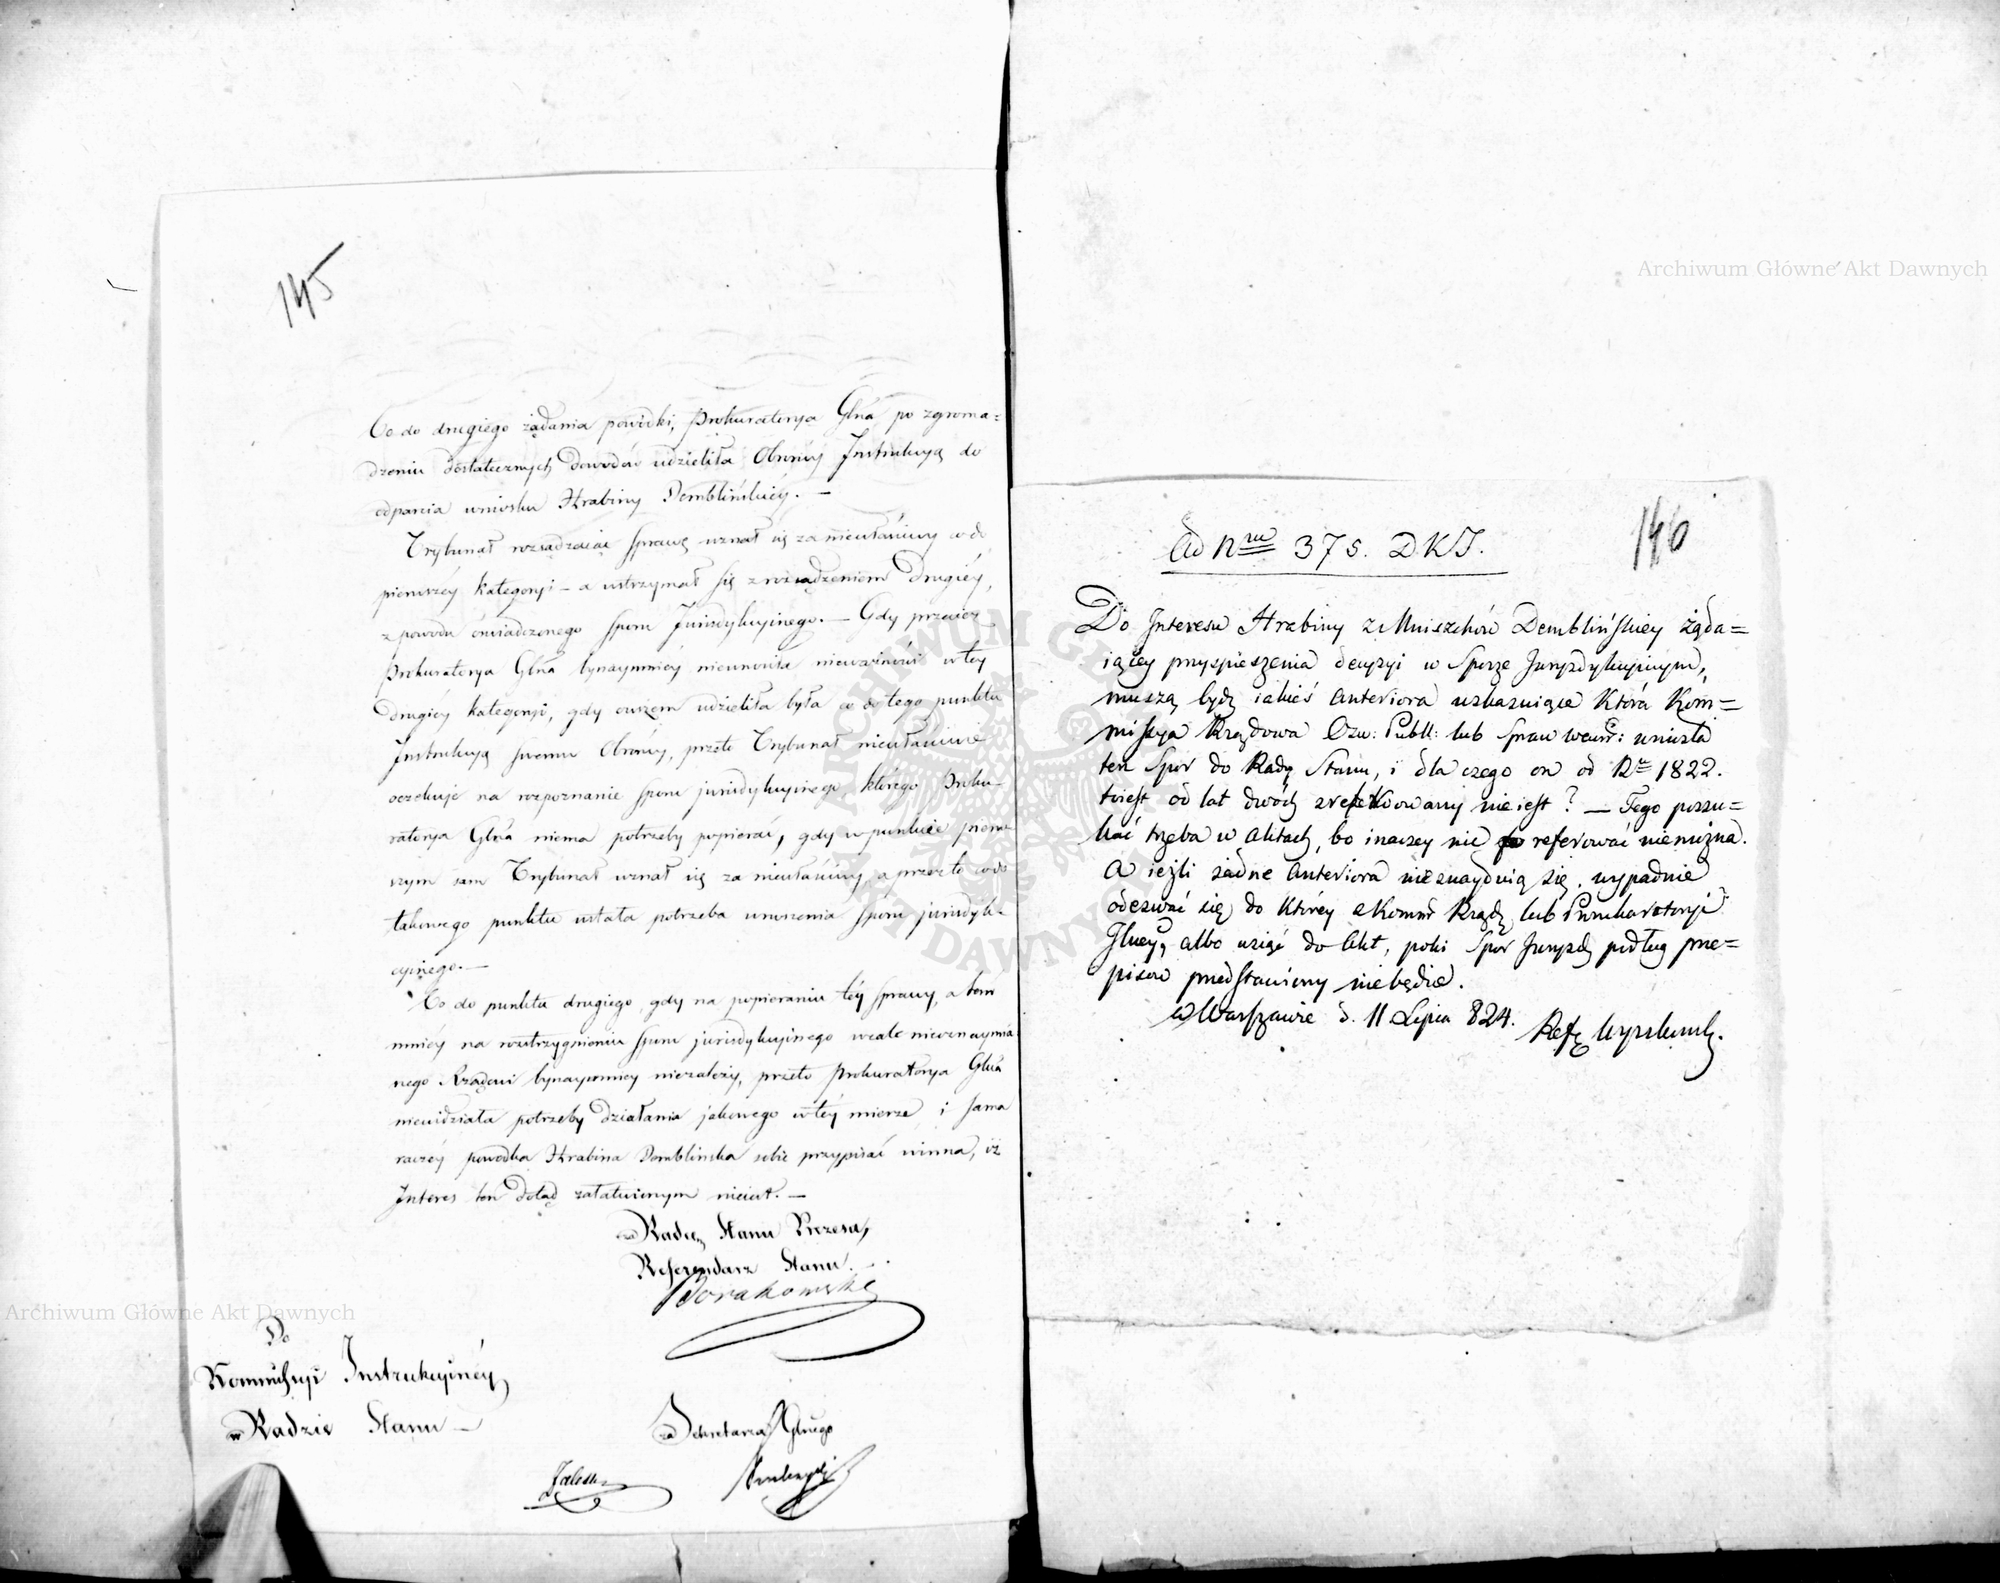 145
Co do drugiego żądania powódki, Prokuratorya Glna po zgroma=
dzeniu dostatecznych dowodów udzieliła Obrońcy Instrukcyą do
odparcia wniosku Hrabiny Demblińskiéy. —
Trybunał rozsądzaiąc sprawę uznał się za niewłaściwy co do
pierwszéy kategoryi — a wstrzymał się z rozsądzeniem drugiéy,
z powodu oświadczonego sporu Jurisdykcyinego. — Gdy przecież
Prokuratorya Glna bynaymniéy niewnosiła niewłaściwości w téy
drugiéy kategoryi, gdy owszem udzieliła była co do tego punktu
Instrukcyą swemu Obrońcy, przeto Trybunał niewłaściwie
oczekuje na rozpoznanie sporu jurisdykcyinego, którego Proku-
ratorya Glna niema potrzeby popierać, gdy w punkcie pierw-
szym sam Trybunał uznał się za niewłaściwy, a przeto co do
takowego punktu ustała potrzeba wnoszenia sporu jurisdyk-
cyinego. —
Co do punktu drugiego, gdy na popieraniu téy sprawy, a tém
mniéy na rozstrzygnieniu sporu jurisdykcyinego wcale
nego Rządowi bynaymniéy niezależy, przeto Prokuratorya Glna
niewidziała potrzeby działania jakowego w téy mierze i sama
raczéy powódka Hrabina Demblińska sobie przypisać winna, iż
Interes ten dotąd załatwionym nieiest. —
za Radcę Stanu Prezesa,
Referendarz Stanu.
Do
Kommissyi Instrukcyinéy
w Radzie Stanu —
za Sekretarza Glnego
146
Ad Nrum 375. D.K.I.
Do Interesu Hrabiny z Mniszchów Demblińskiey żąda=
iącey przyspieszenia decyzyi w Sporze Juryzdykcyinym,
muszą bydź iakieś anteriora wskazuiące która Kom=
missya Rządowa Ośw: Publ: lub Spraw wewn: wniosła
ten Spór do Rady Stanu, i dla czego on od Re 1822.
toiest od lat dwóch zreferowany nie iest? — Tego poszu=
kać trzeba w aktach, bo inaczey nic referować niemożna.
A ieżli żadne anteriora nieznaydvią się, wypadnie
odezwać się do którey Komm Rządz lub Prokuratoryi
Glney, albo wziąć do Akt, poki Spór Juryzd podług prze=
pisów przedstawiony niebędzie.
w Warszawie d. 11 Lipca 824.
Archiwum Główne Akt Dawnych
Archiwum Główne Akt Dawnych
ARCHIWUM GŁÓWNE AKT DAWNYCH